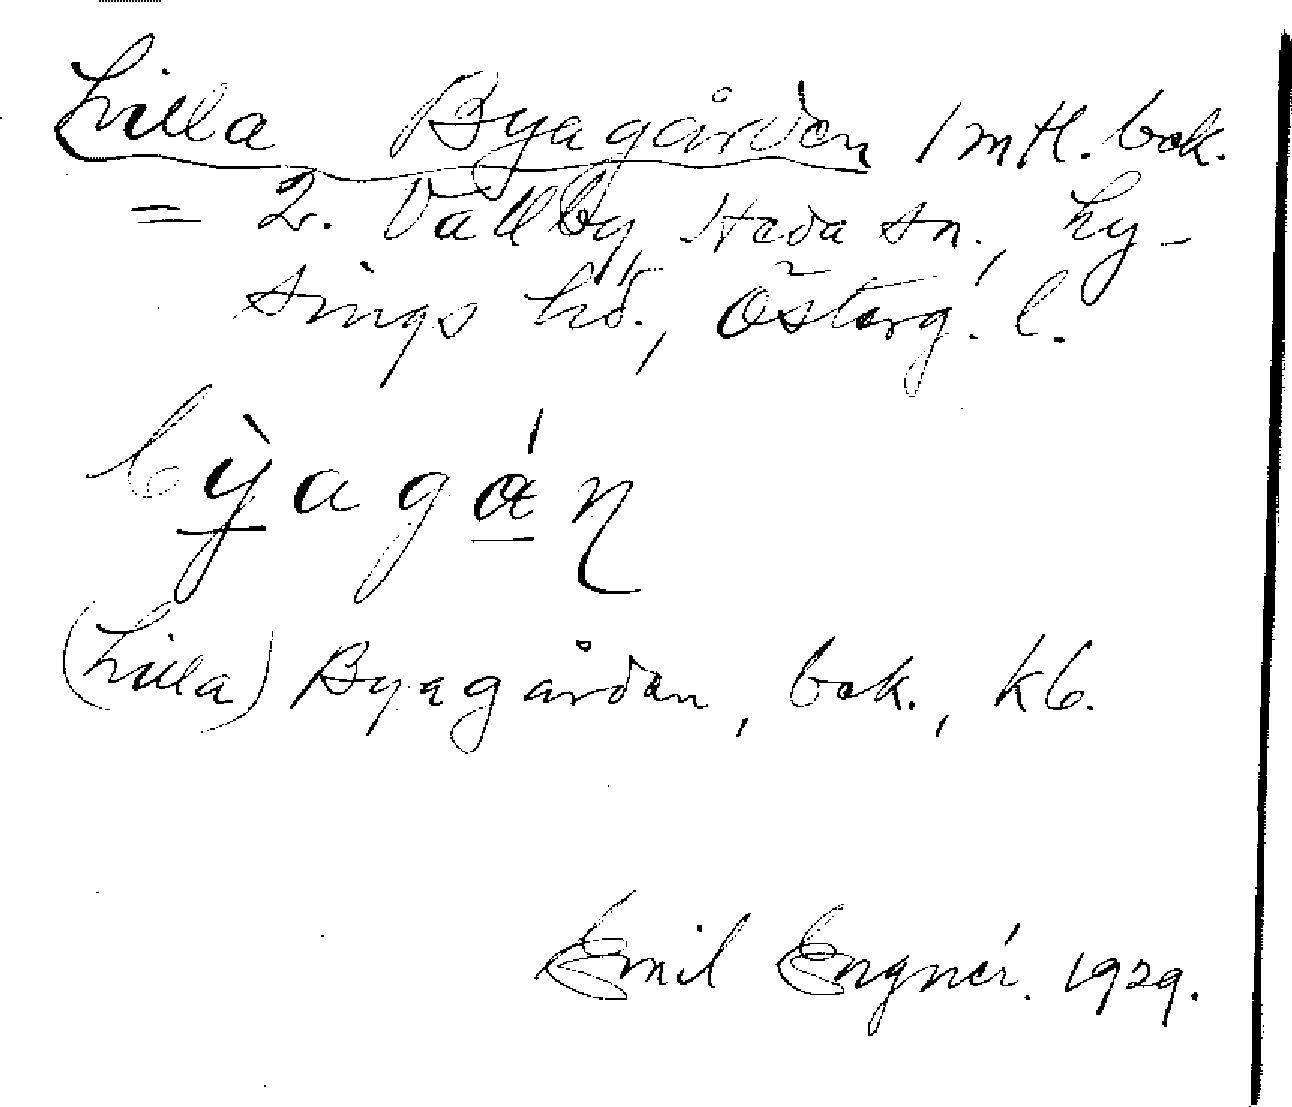 Lilla Byagården 1 mtl. bok.
= 2. Vallby, Heda sn., Ly-
sings hd., Österg. l.
bỳagán
(Lilla) Byagården, bok., kb.
Emil Engnér. 1929.